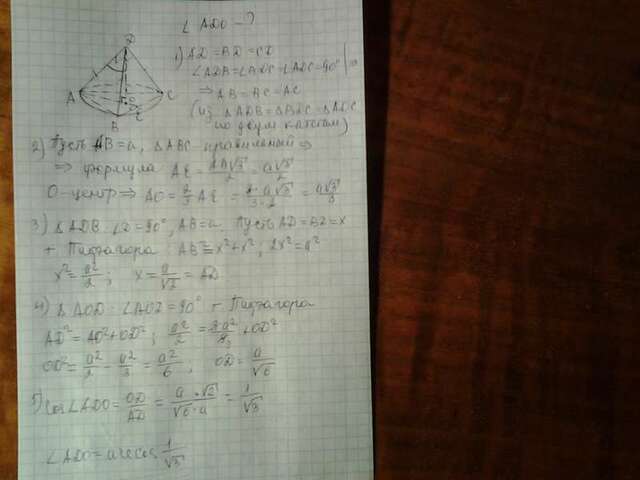 ∠ADO - ?
D
A
C
B
O
1) AD = BD = CD
∠ADB = ∠BDC = ∠ADC = 90° | ⇒
⇒ AB = BC = AC
(из ΔADB = ΔBDC = ΔADC
по двум катетам)
2) Пусть AB = a, ΔABC правильный ⇒
⇒ формула AE = AB√3/2 = a√3/2
O-центр ⇒ AO = 2/3 AE = 2·a√3/3·2 = a√3/3
3) ΔADB ∠D = 90°, AB = a. Пусть AD = BD = x
т Пифагора: AB² = x² + x²; 2x² = a²
x² = a²/2; x = a/√2 = AD
4) ΔAOD ∠AOD = 90° т Пифагора
AD² = AO² + OD²; a²/2 = 3a²/9 + OD²
OD² = a²/2 - a²/3 = a²/6, OD = a/√6
5) cos∠ADO = OD/AD = a·√2/√6·a = 1/√3
∠ADO = arccos 1/√3